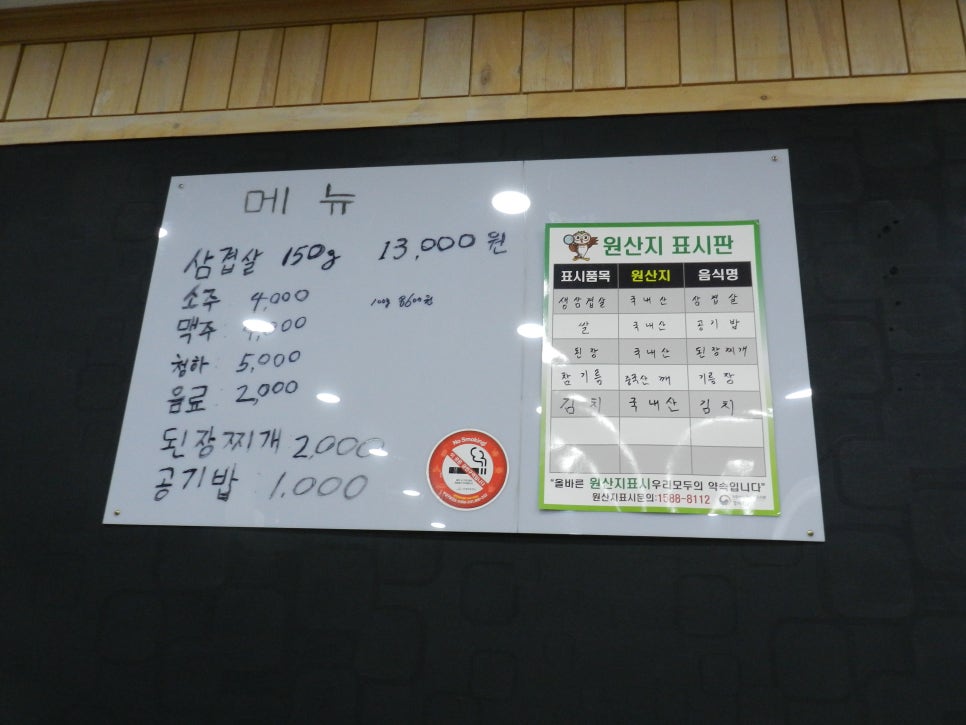 메뉴
삼겹살 150g 13,000원
소주 4,000 100g 8600원
맥주 4,000
청하 5,000
음료 2,000
된장찌개 2,000
공기밥 1,000
No Smoking!
원산지 표시판
표시품목 원산지 음식명
생삼겹살 국내산 삼겹살
쌀 국내산 공기밥
된장 국내산 된장찌개
참기름 중국산 깨 기름장
김치 국내산 김치
"올바른 원산지표시 우리모두의 약속입니다"
원산지표시문의:1588-8112